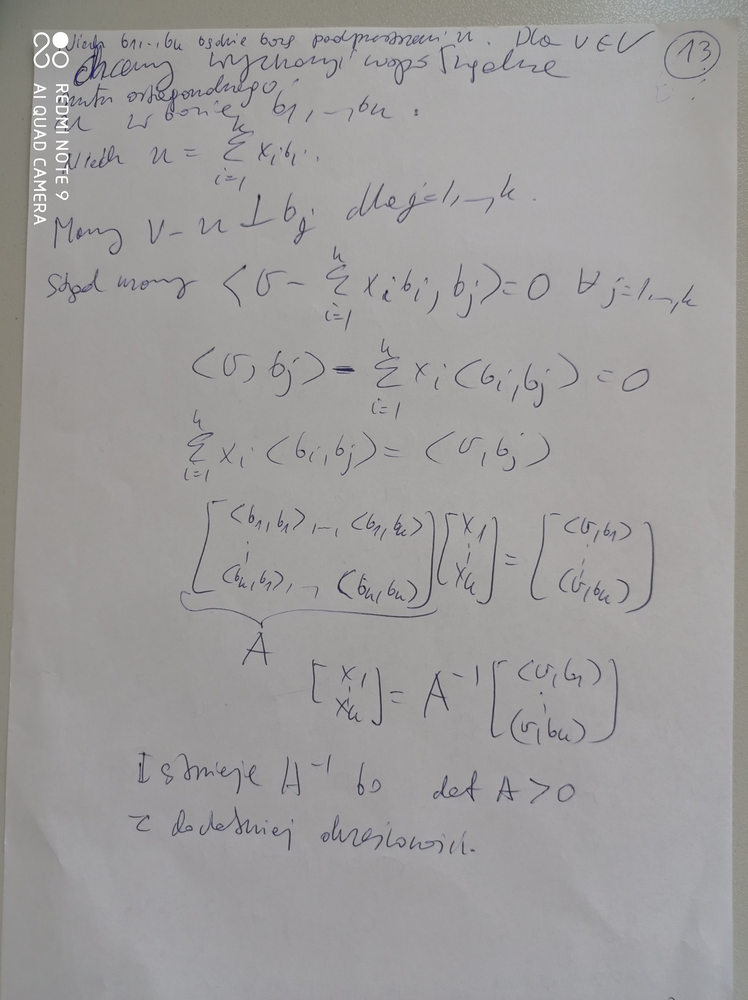 Niech b1,..,bk będzie bazą podprzestrzeni U. Dla v∈V
13
chcemy wyznaczyć współrzędne
rzutu ortogonalnego
u w bazie b1,..,bk.
Niech u = \sum_{i=1}^{k} x_i b_i.
Mamy v-u ⊥ b_j dla j=1,..,k.
Stąd mamy <v - \sum_{i=1}^{k} x_i b_i, b_j> = 0 ∀ j=1,..,k
<v, b_j> - \sum_{i=1}^{k} x_i <b_i, b_j> = 0
\sum_{i=1}^{k} x_i <b_i, b_j> = <v, b_j>
[<b1,b1>,..,<b1,bk> ⋮ <bk,b1>,..,<bk,bk>] [x1 ⋮ xk] = [<v,b1> ⋮ <v,bk>]
A
[x1 ⋮ xk] = A^{-1} [<v,b1> ⋮ <v,bk>]
Istnieje A^{-1} bo det A > 0
z dodatniej określoności.
REDMI NOTE 9
AI QUAD CAMERA